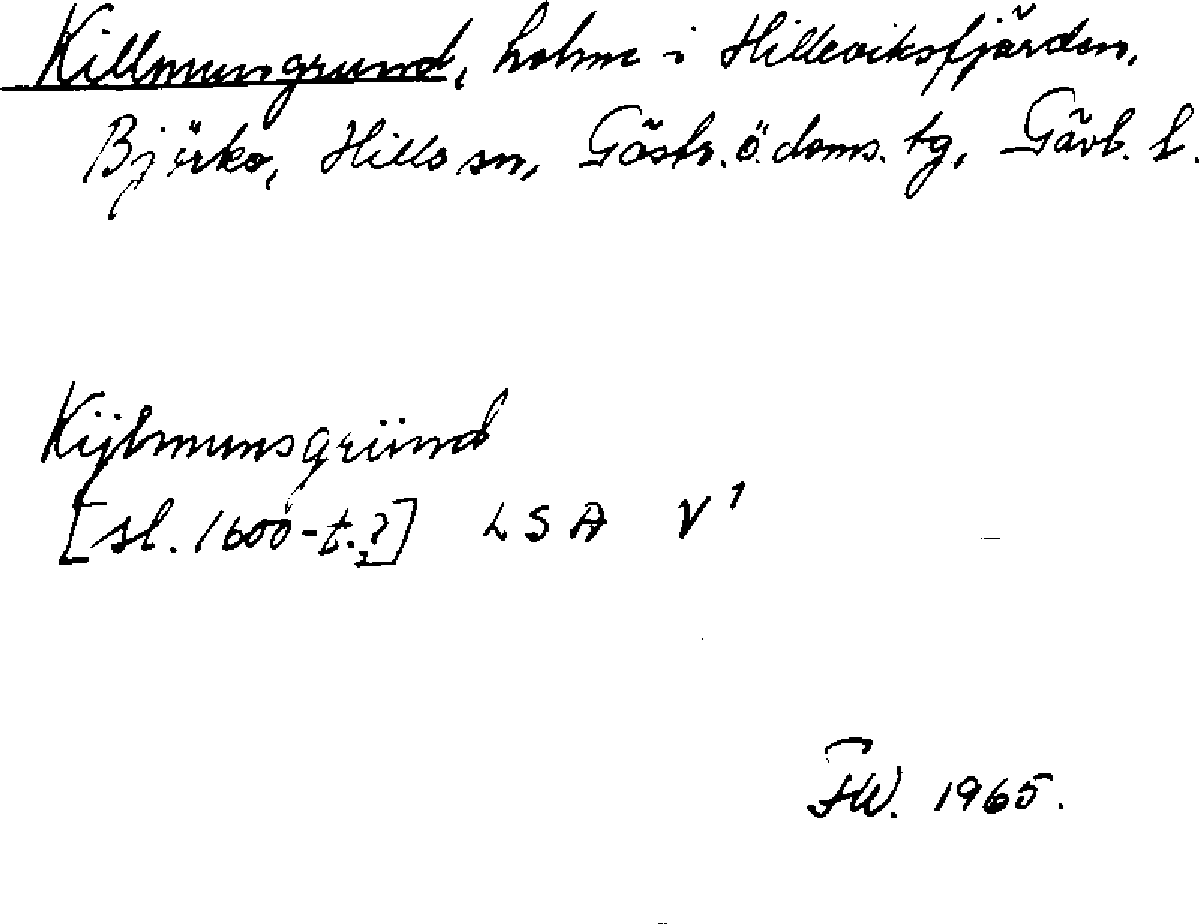 Killmungrund, holme i Hilleviksfjärden,
Björke, Hille sn, Gästr. ö. doms. tg, Gävl. l.
Kijlmunsgründ
[sl. 1600-t.?] LSA V¹
FW. 1965.